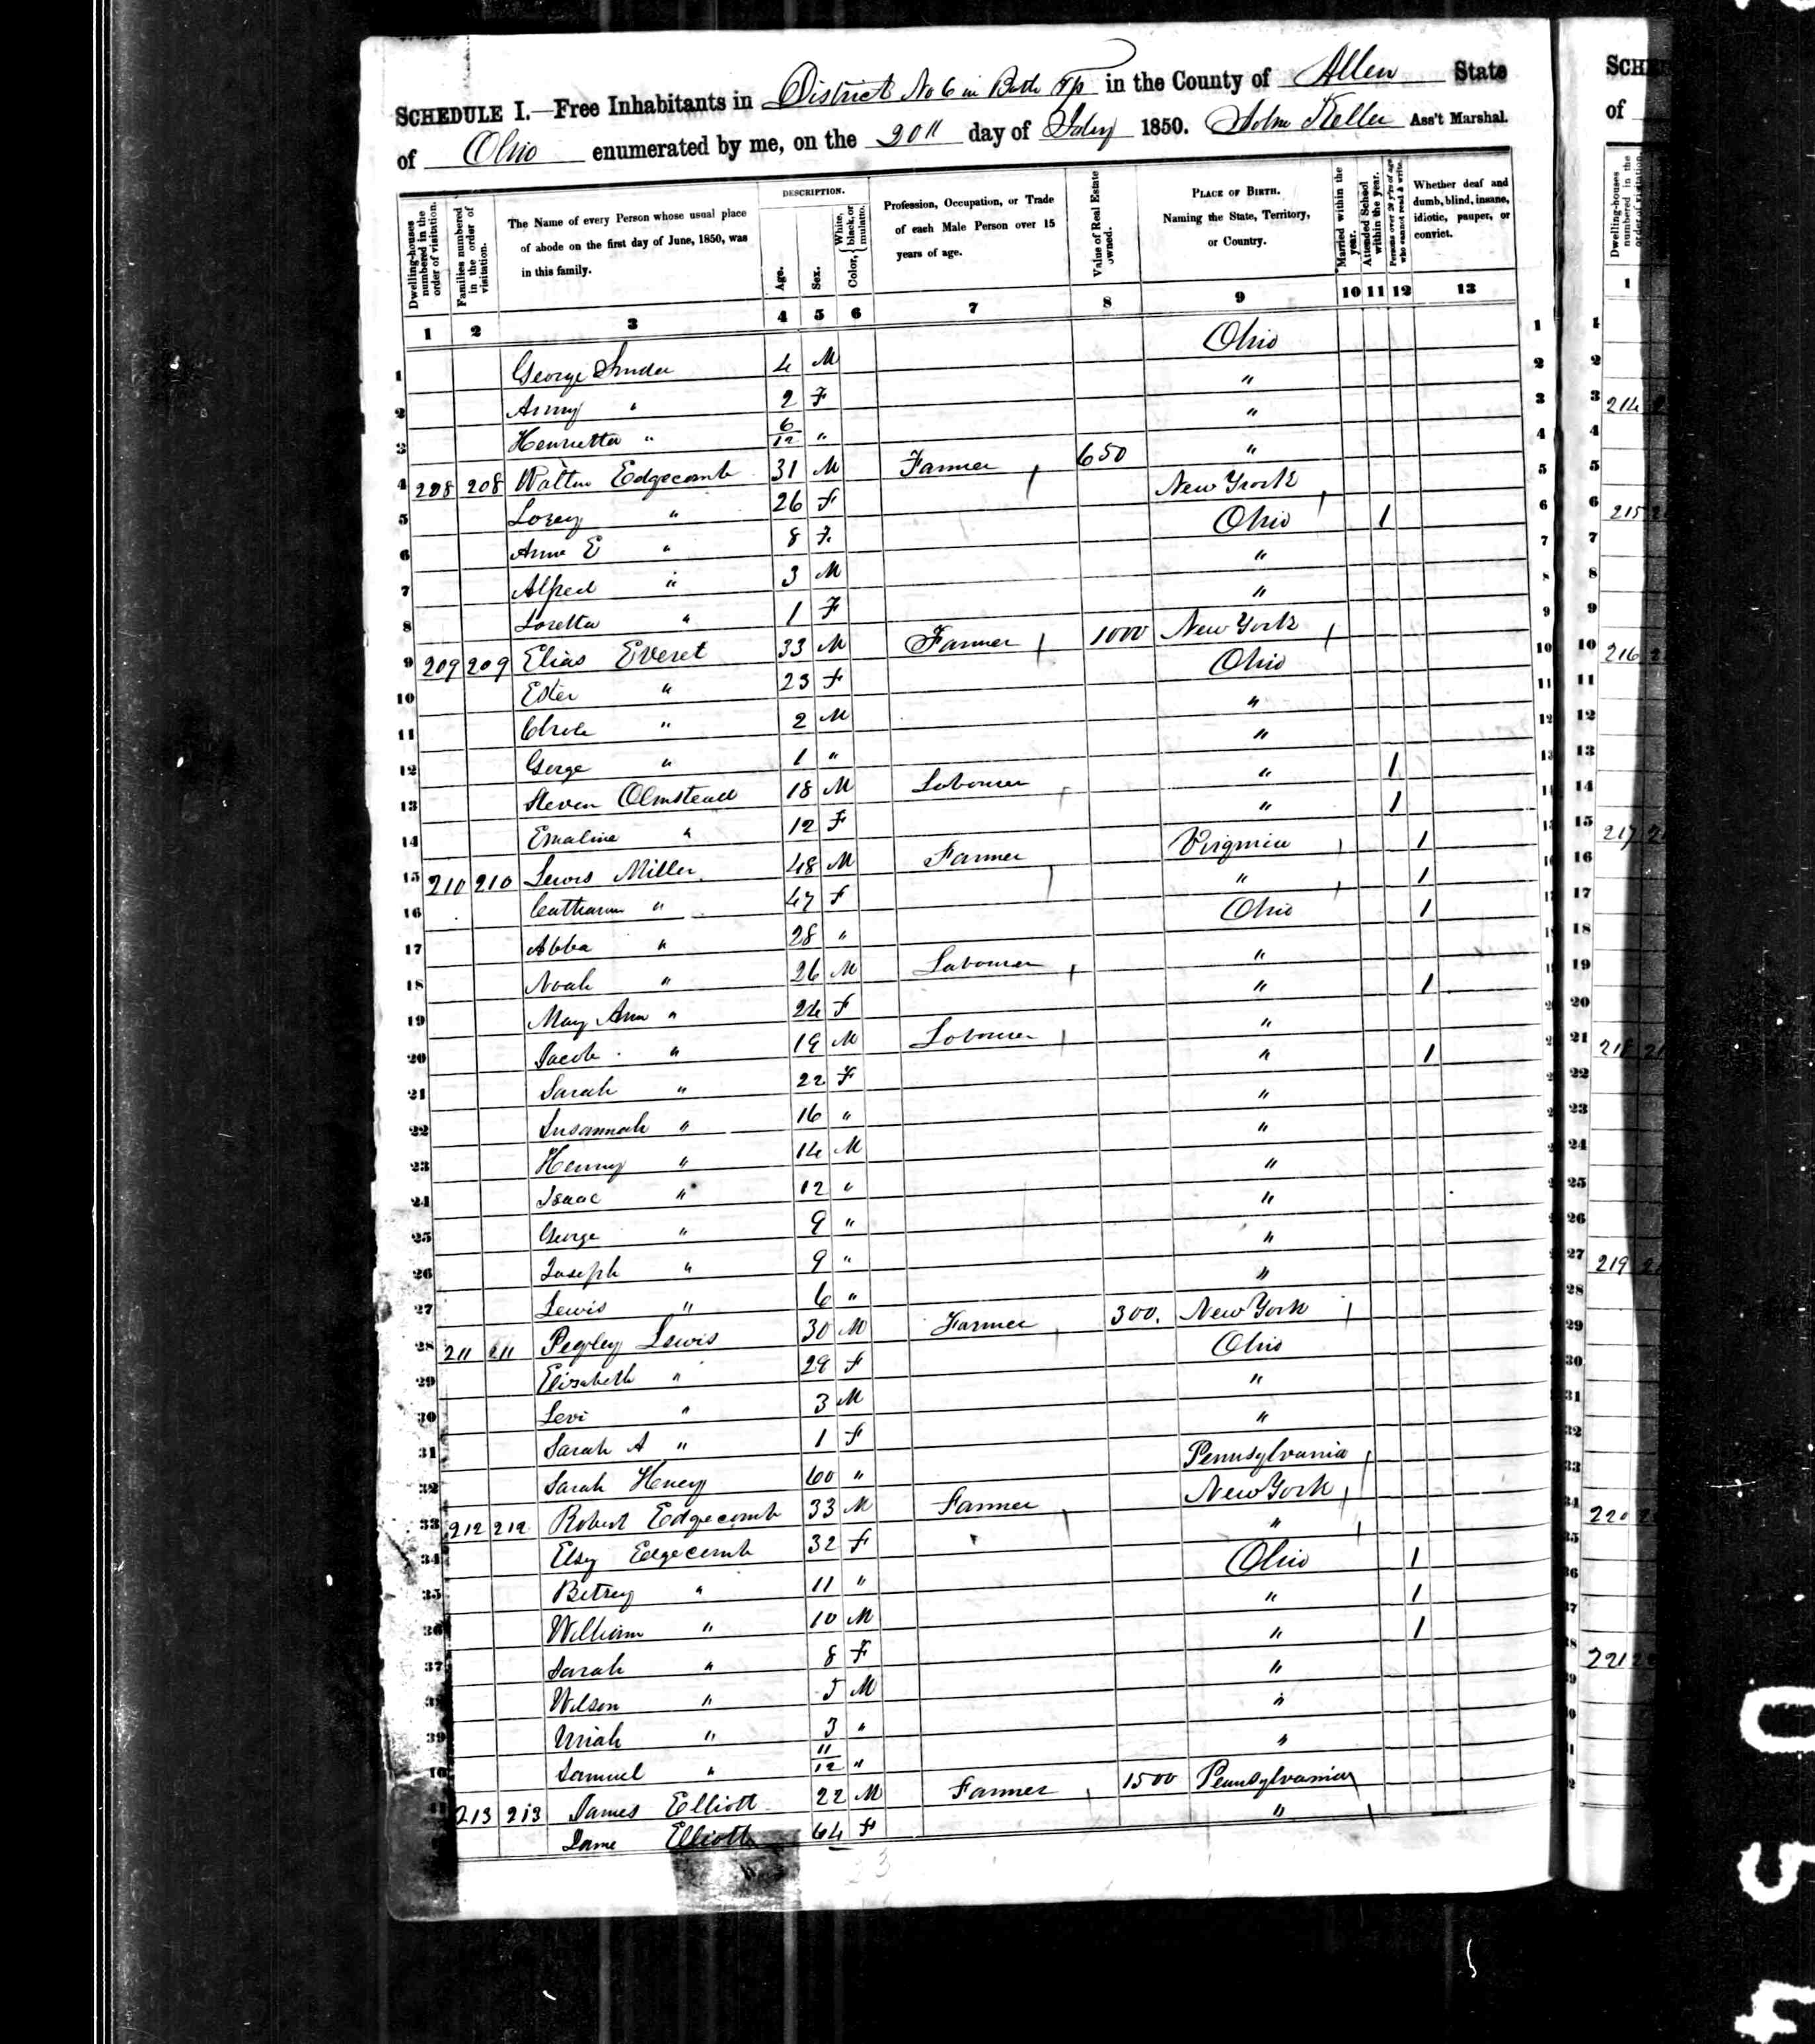 SCHEDULE I.—Free Inhabitants in District No 6 in Bath Tp in the County of Allen State
of Ohio enumerated by me, on the 20th day of July 1850. Keller Ass't Marshal.
Dwelling-houses numbered in the order of visitation.
Families numbered in the order of visitation.
The Name of every Person whose usual place of abode on the first day of June, 1850, was in this family.
DESCRIPTION.
Age.
Sex.
Color, { White, black, or mulatto.
Profession, Occupation, or Trade of each Male Person over 15 years of age.
Value of Real Estate owned.
PLACE OF BIRTH. Naming the State, Territory, or Country.
Married within the year.
Attended School within the year.
Persons over 20 y'rs of age who cannot read & write.
Whether deaf and dumb, blind, insane, idiotic, pauper, or convict.
1 2 3 4 5 6 7 8 9 10 11 12 13
1 George 4 M Ohio 1
2 " 2 F " 2
3 Henrietta " 6/12 " " 3
4 208 208 Edgecomb 31 M Farmer 650 " 4
5 Lorey " 26 F New York 5
6 Anne E " 8 F. Ohio 1 6
7 Alfred " 3 M " 7
8 Loretta " 1 F " 8
9 209 209 Elias Everet 33 M Farmer 1000 New York 9
10 Ester " 23 F Ohio 10
11 " 2 M " 11
12 Gerge " 1 " " 12
13 Steven Olmstead 18 M Labourer " 1 13
14 Emaline " 12 F " 1
15 210 210 Lewis Miller. 48 M Farmer Virginia 1
16 Catharine " 47 F " 1
17 Abba " 28 " Ohio 1
18 Noah " 26 M Labourer "
19 Mary Ann " 24 F " 1
20 Jacob " 19 M Labourer "
21 Sarah " 22 F " 1
22 Susannah " 16 " "
23 Henry " 14 M "
24 Isaac " 12 " "
25 George " 9 " "
26 Joseph " 9 " "
27 Lewis " 6 " "
28 211 211 Lewis 30 M Farmer 300. New York
29 Elizabeth " 29 F Ohio
30 Levi " 3 M "
31 Sarah A " 1 F "
32 Sarah Henry 60 " Pennsylvania
33 212 212 Robert Edgecomb 33 M Farmer New York
34 Elsy Edgecomb 32 F "
35 Betsey " 11 " Ohio 1
36 William " 10 M " 1
37 Sarah " 8 F " 1
38 Wilson " 5 M "
39 Uriah " 3 " "
Samuel " 11/12 " "
213 213 James Elliott 22 M Farmer 1500 Pennsylvania
Jane Elliott 64 F "
SCHE
of
Dwelling-houses numbered in the order of visitation.
1
1
2
3 214
4
5
6 215
7
8
9
10 216
11
12
13
14
15 217
16
17
18
19
20
21 218
22
23
24
25
26
27 219
28
29
30
31
32
33
34 220
221